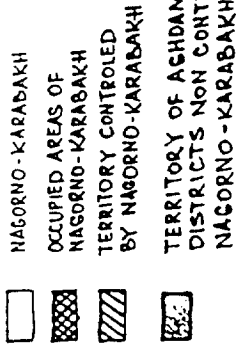 NAGORNO-KARABAKH
OCCUPIED AREAS OF
NAGORNO-KARABAKH
TERRITORY CONTROLED
BY NAGORNO-KARABAKH
TERRITORY OF AGHDAN
DISTRICTS NON CONT
NAGORNO-KARABAKH